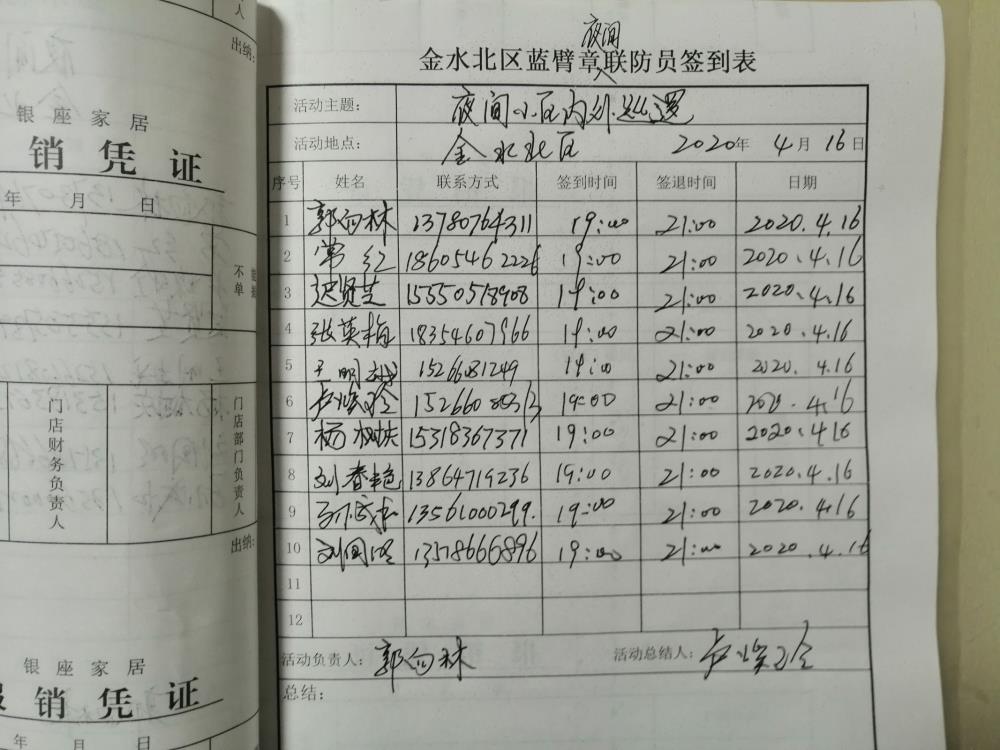 人
出纳:
银座家居
销凭证
年 月 日
不单
门店财务负责人
门店部门负责人
出纳:
银座家居
销凭证
年 月 日
夜间
金水北区蓝臂章联防员签到表
活动主题: 夜间小区内外巡逻
活动地点: 金水北区 2020年 4月 16日
序号 姓名 联系方式 签到时间 签退时间 日期
1 郭向林 13780764311 19:00 21:00 2020.4.16
2 常红 18605462226 19:00 21:00 2020.4.16
3 贤芝 15550518908 19:00 21:00 2020.4.16
4 张英梅 18354607966 19:00 21:00 2020.4.16
5 明 1526681249 19:00 21:00 2020.4.16
6 19:00 21:00 2020.4.16
7 杨树 15318367371 19:00 21:00 2020.4.16
8 刘春艳 13864719236 19:00 21:00 2020.4.16
9 13561000299. 19:00 21:00 2020.4.16
10 刘国 13518666896 19:00 21:00 2020.4.16
11
12
活动负责人: 郭向林 活动总结人:
总结: